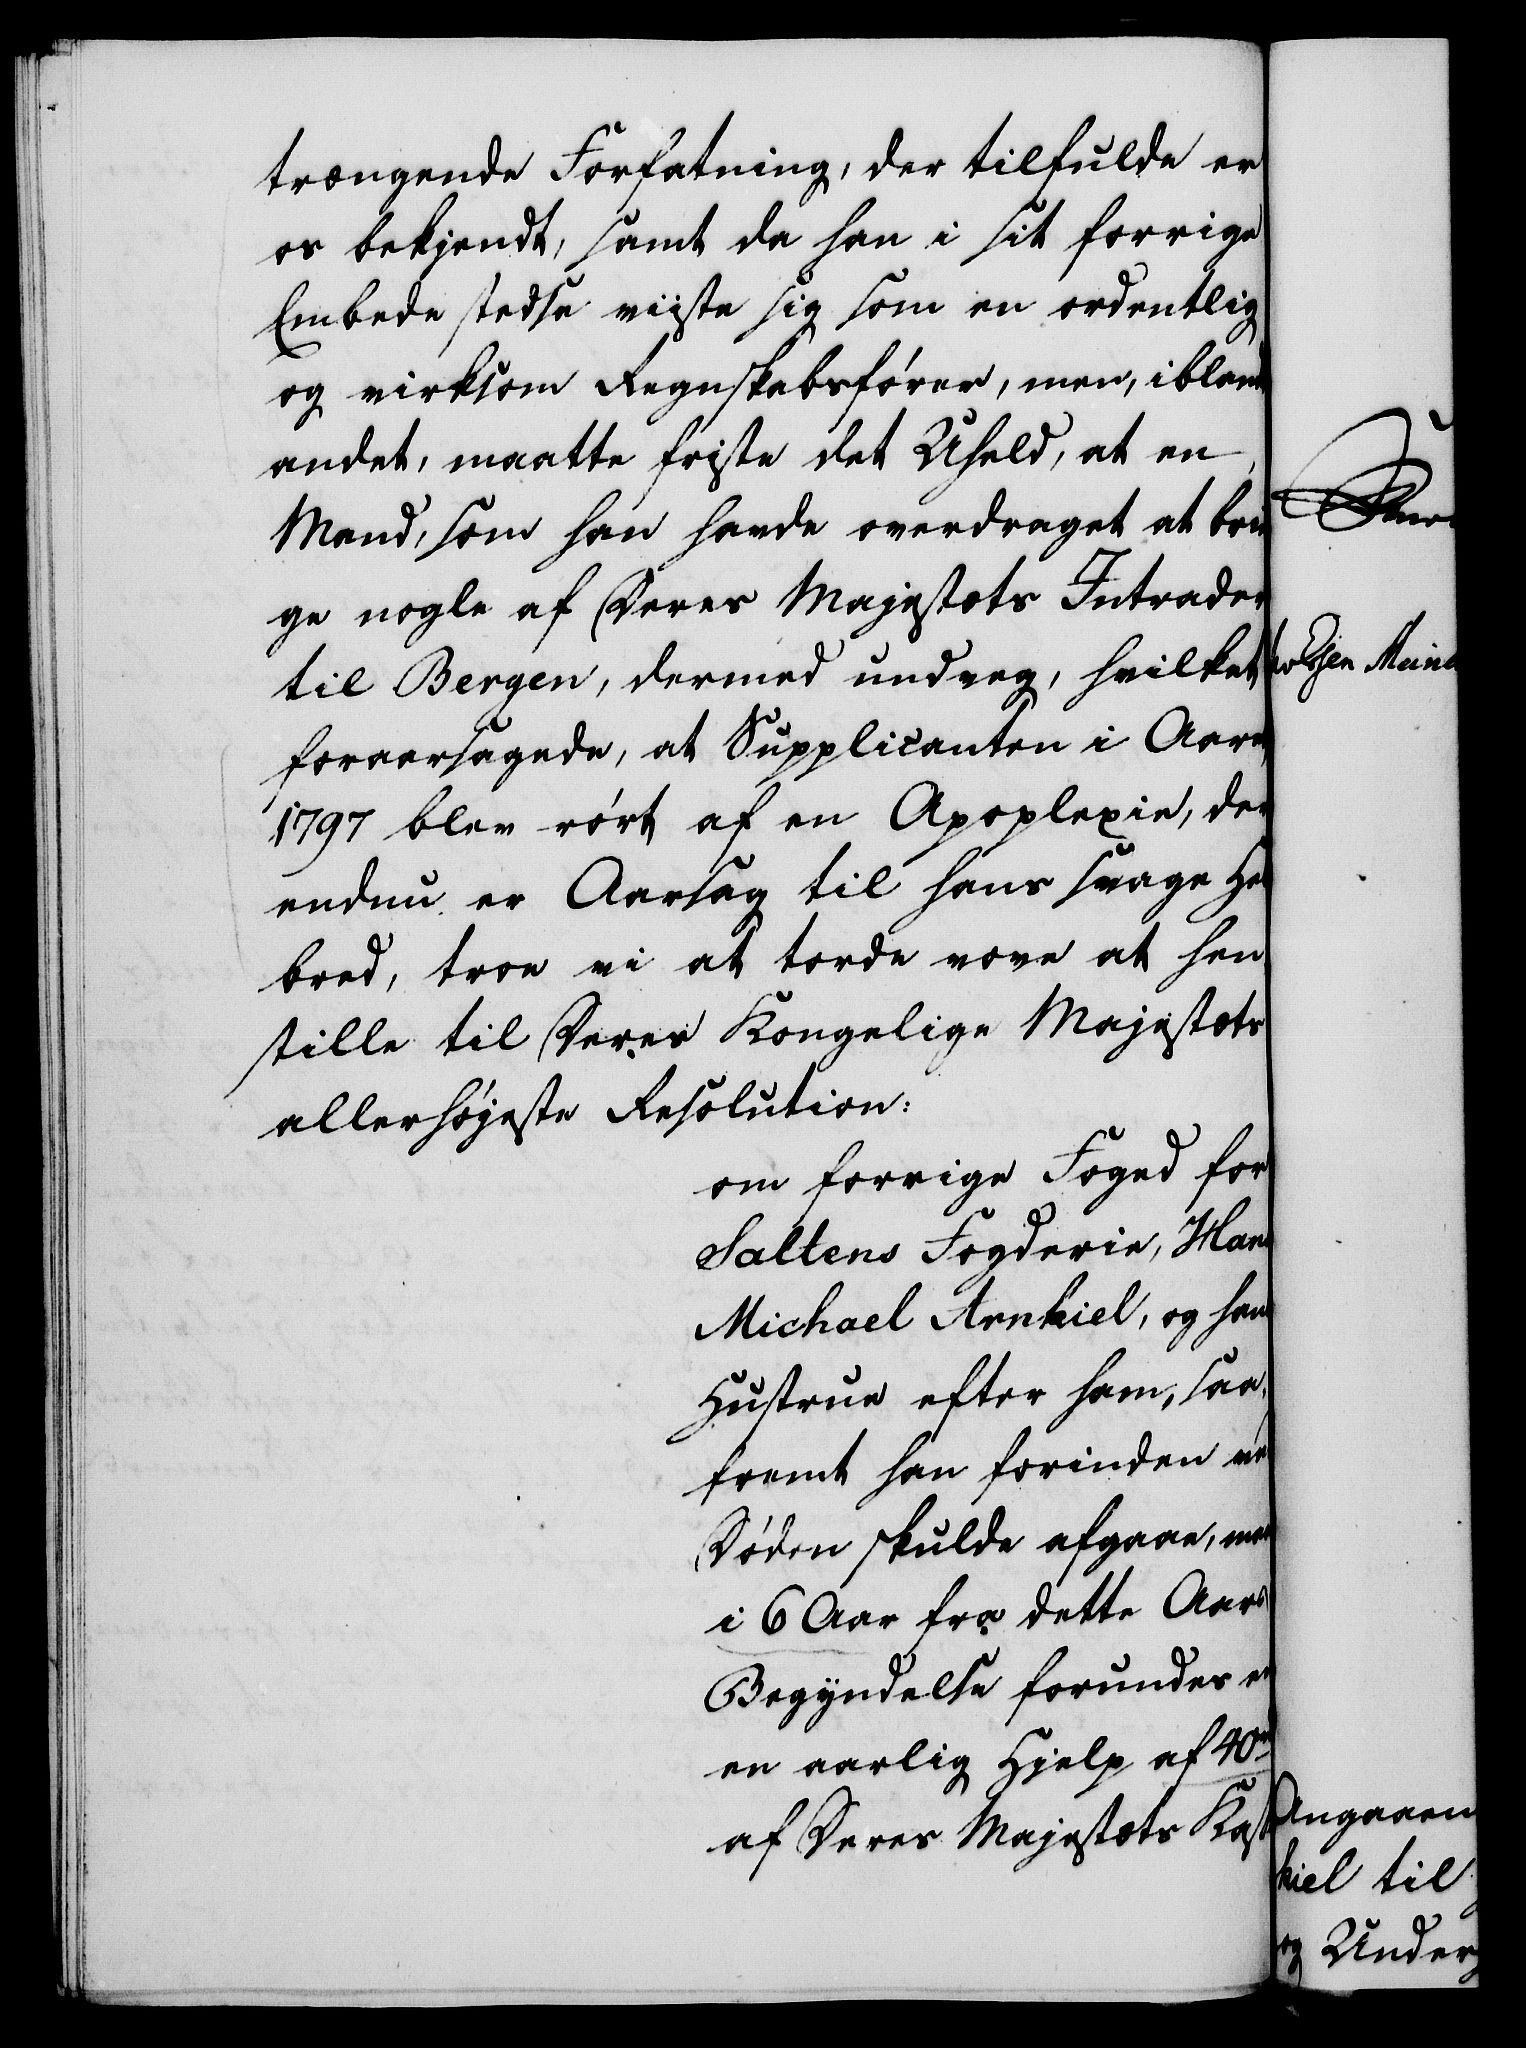 trængende Forfatning, der tilfulde er
os bekjendt, samt da han i sit forrige
Embede stedse viiste sig som en ordentlig
og virksom Regnskabsfører, men, iblandt
andet, maatte friste det Uheld, at en
Mand, som han havde overdraget at brin
ge nogle af Deres Majestæts Intrader
til Bergen, dermed undveg, hvilket
foraarsagede, at Supplicanten i Aaret
1797 blev rørt af en Apoplexie, der
endnu er Aarsag til hans svage Hel
bred, troe vi at torde vove at hen
stille til Deres Kongelige Majestæts
allerhøjeste Resolution:
om forrige Foged for
Saltens Fogderie,
Michael Arnkiel, og hans
Hustrue efter ham, saa
fremt han forinden ved
Døden skulde afgaae, maa
i 6 Aar fra dette Aars
Begyndelse forundes
en aarlig Hjelp af 40
af Deres Majestæts
Angaaen
kiel til
og Under